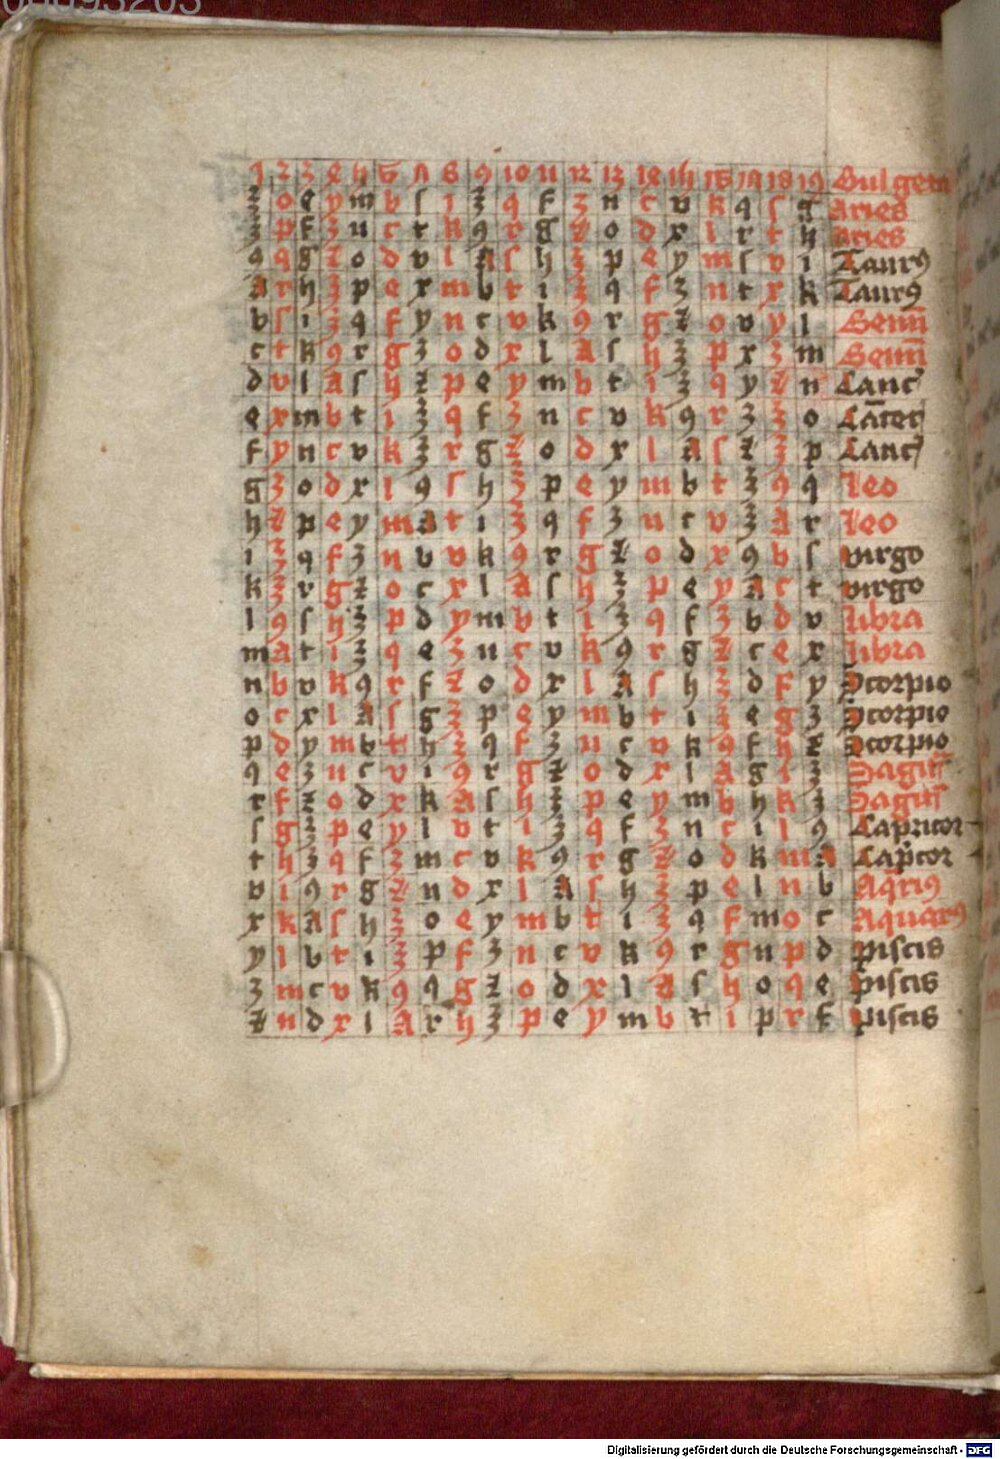 1 2 3 4 5 6 7 8 9 10 11 12 13 14 15 16 17 18 19
3 o e y m b ſ i 3 q f 3 n c v k q ſ g Aries
3 p f 3 n c t k 9 r g z o d x l r t h Aries
9 q g z o d v l A ſ h 3 p e y m ſ v i Taurꝰ
A r h 3 p e x m b t i 3 q f 3 n t x k Taurꝰ
b ſ i 3 q f y n c v k 9 r g z o v y l Gemī
c t k 9 r g 3 o d x l A ſ h 3 p x 3 m Gemī
d v l A ſ h z p e y m b t i 3 q y z n Canc̄
e x m b t i 3 q f 3 n c v k 9 r 3 3 o Cācer
f y n c v k 3 r g z o d x l A ſ z 3 p Canc̄
g 3 o d x l 9 ſ h 3 p e y m b t 3 9 q leo
h z p e y m A t i 3 q f 3 n c v 3 A r leo
i 3 q f 3 n b v k 9 r g z o d x 9 b ſ virgo
k 3 r g z o c x l A ſ h 3 p e y A c t virgo
l 9 ſ h 3 p d y m b t i 3 q f 3 b d v libra
m A t i 3 q e 3 n c v k 9 r g z c e x libra
n b v k 9 r f z o d x l A ſ h 3 d f y Scorpio
o c x l A ſ g 3 p e y m b t i 3 e g 3 Scorpio
p d y m b t h 3 q f 3 n c v k 9 f h z Scorpio
q e 3 n c v i 9 r g z o d x l A g i 3 Sagitſ
r f z o d x k A ſ h 3 p e y m b h k 3 Sagitſ
ſ g 3 p e y l b t i 3 q f 3 n c i l 9 Capricor
t h 3 q f 3 m c v k 9 r g z o d k m A Cap̄cor
v i 9 r g z n d x l A ſ h 3 p e l n b Aq̄riꝰ
x k A ſ h 3 o e y m b t i 3 q f m o c Aquarꝰ
y l b t i 3 p f 3 n c v k 9 r g n p d piſcis
3 m c v k 9 q g z o d x l A ſ h o q e piſcis
z n d x l A r h 3 p e y m b t i p r f piſcis
Digitalisierung gefördert durch die Deutsche Forschungsgemeinschaft - DFG